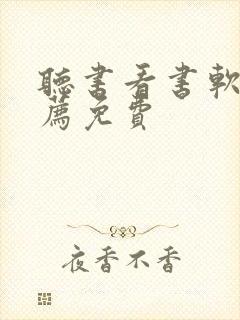 聽書看書軟
薦免費
夜香不香